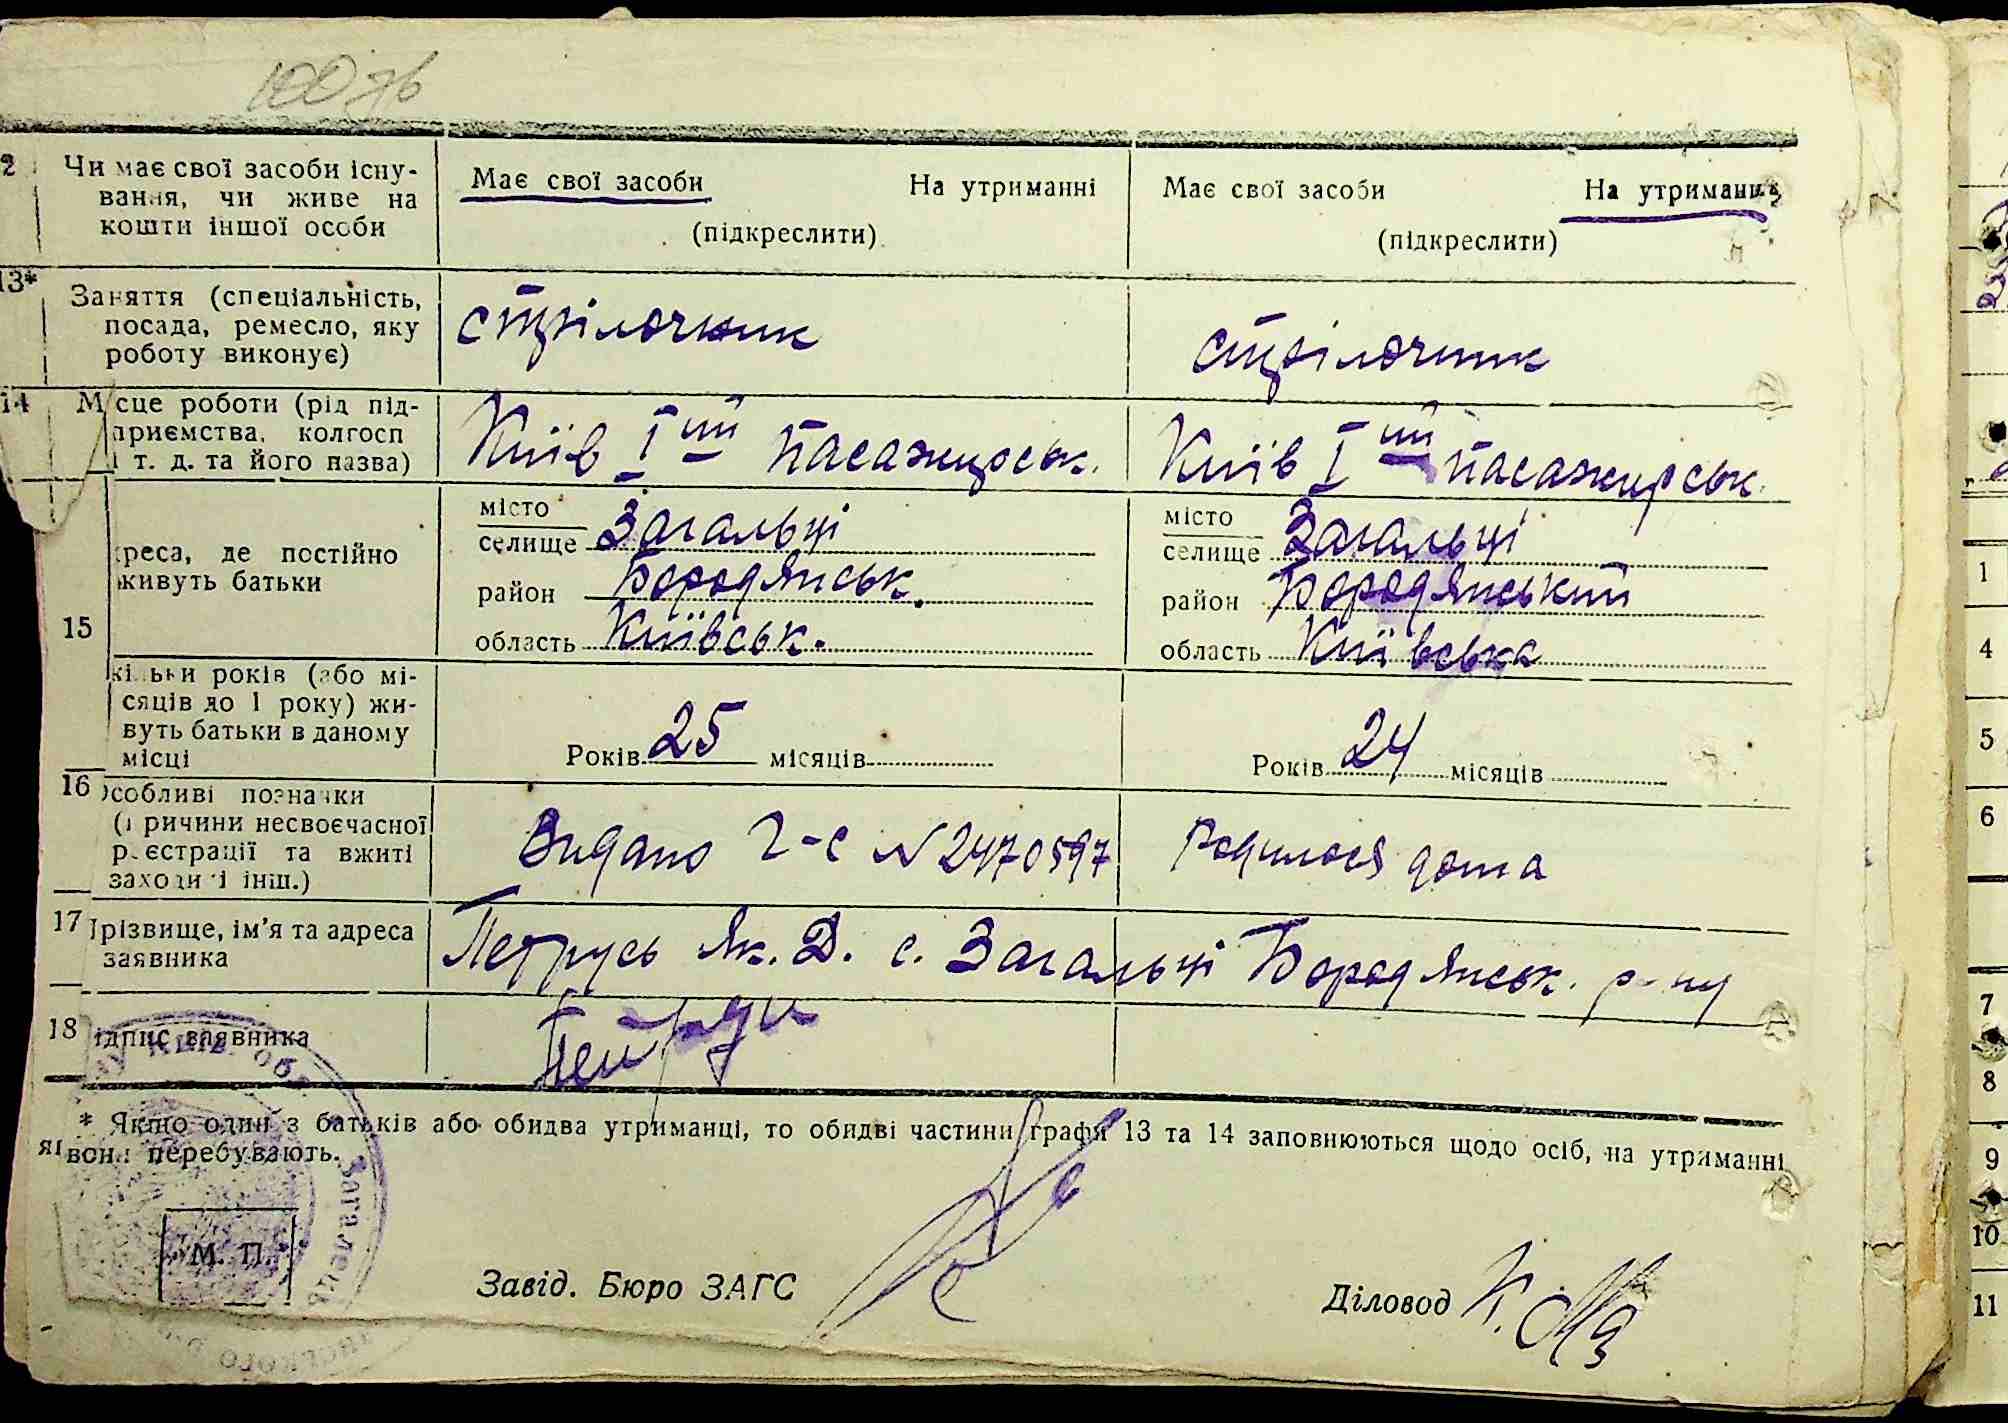 100 зв
2 Чи має свої засоби існу-
вання, чи живе на
кошти іншої особи
Має свої засоби На утриманні
(підкреслити)
Має свої засоби На утриманні
(підкреслити)
13* Заняття (спеціальність,
посада, ремесло, яку
роботу виконує)
стрілочник
стрілочник
14 Місце роботи (рід під-
приємства, колгосп
і т. д. та його назва)
Київ Iий пасажирськ.
Київ Iий пасажирськ.
15 адреса, де постійно
живуть батьки
місто
селище Загальці
район Бородянськ.
область Київськ.
місто
селище Загальці
район Бородянський
область Київська
кільки років (або мі-
сяців до 1 року) жи-
вуть батьки в даному
місці
Років 25 місяців
Років 24 місяців
16 особливі позначки
(причини несвоєчасної
реєстрації та вжиті
заходи і інш.)
Видано г-с №2470597
Родилося дома
17 Прізвище, ім'я та адреса
заявника
Петрусь Як. Д. с. Загальці Бородянськ. р-ну
18 ідпис заявника
* Якщо один з батьків або обидва утриманці, то обидві частини графи 13 та 14 заповнюються щодо осіб, на утриманні
які вони перебувають.
М. П.
Завід. Бюро ЗАГС
Діловод
1
4
5
6
7
8
9
10
11